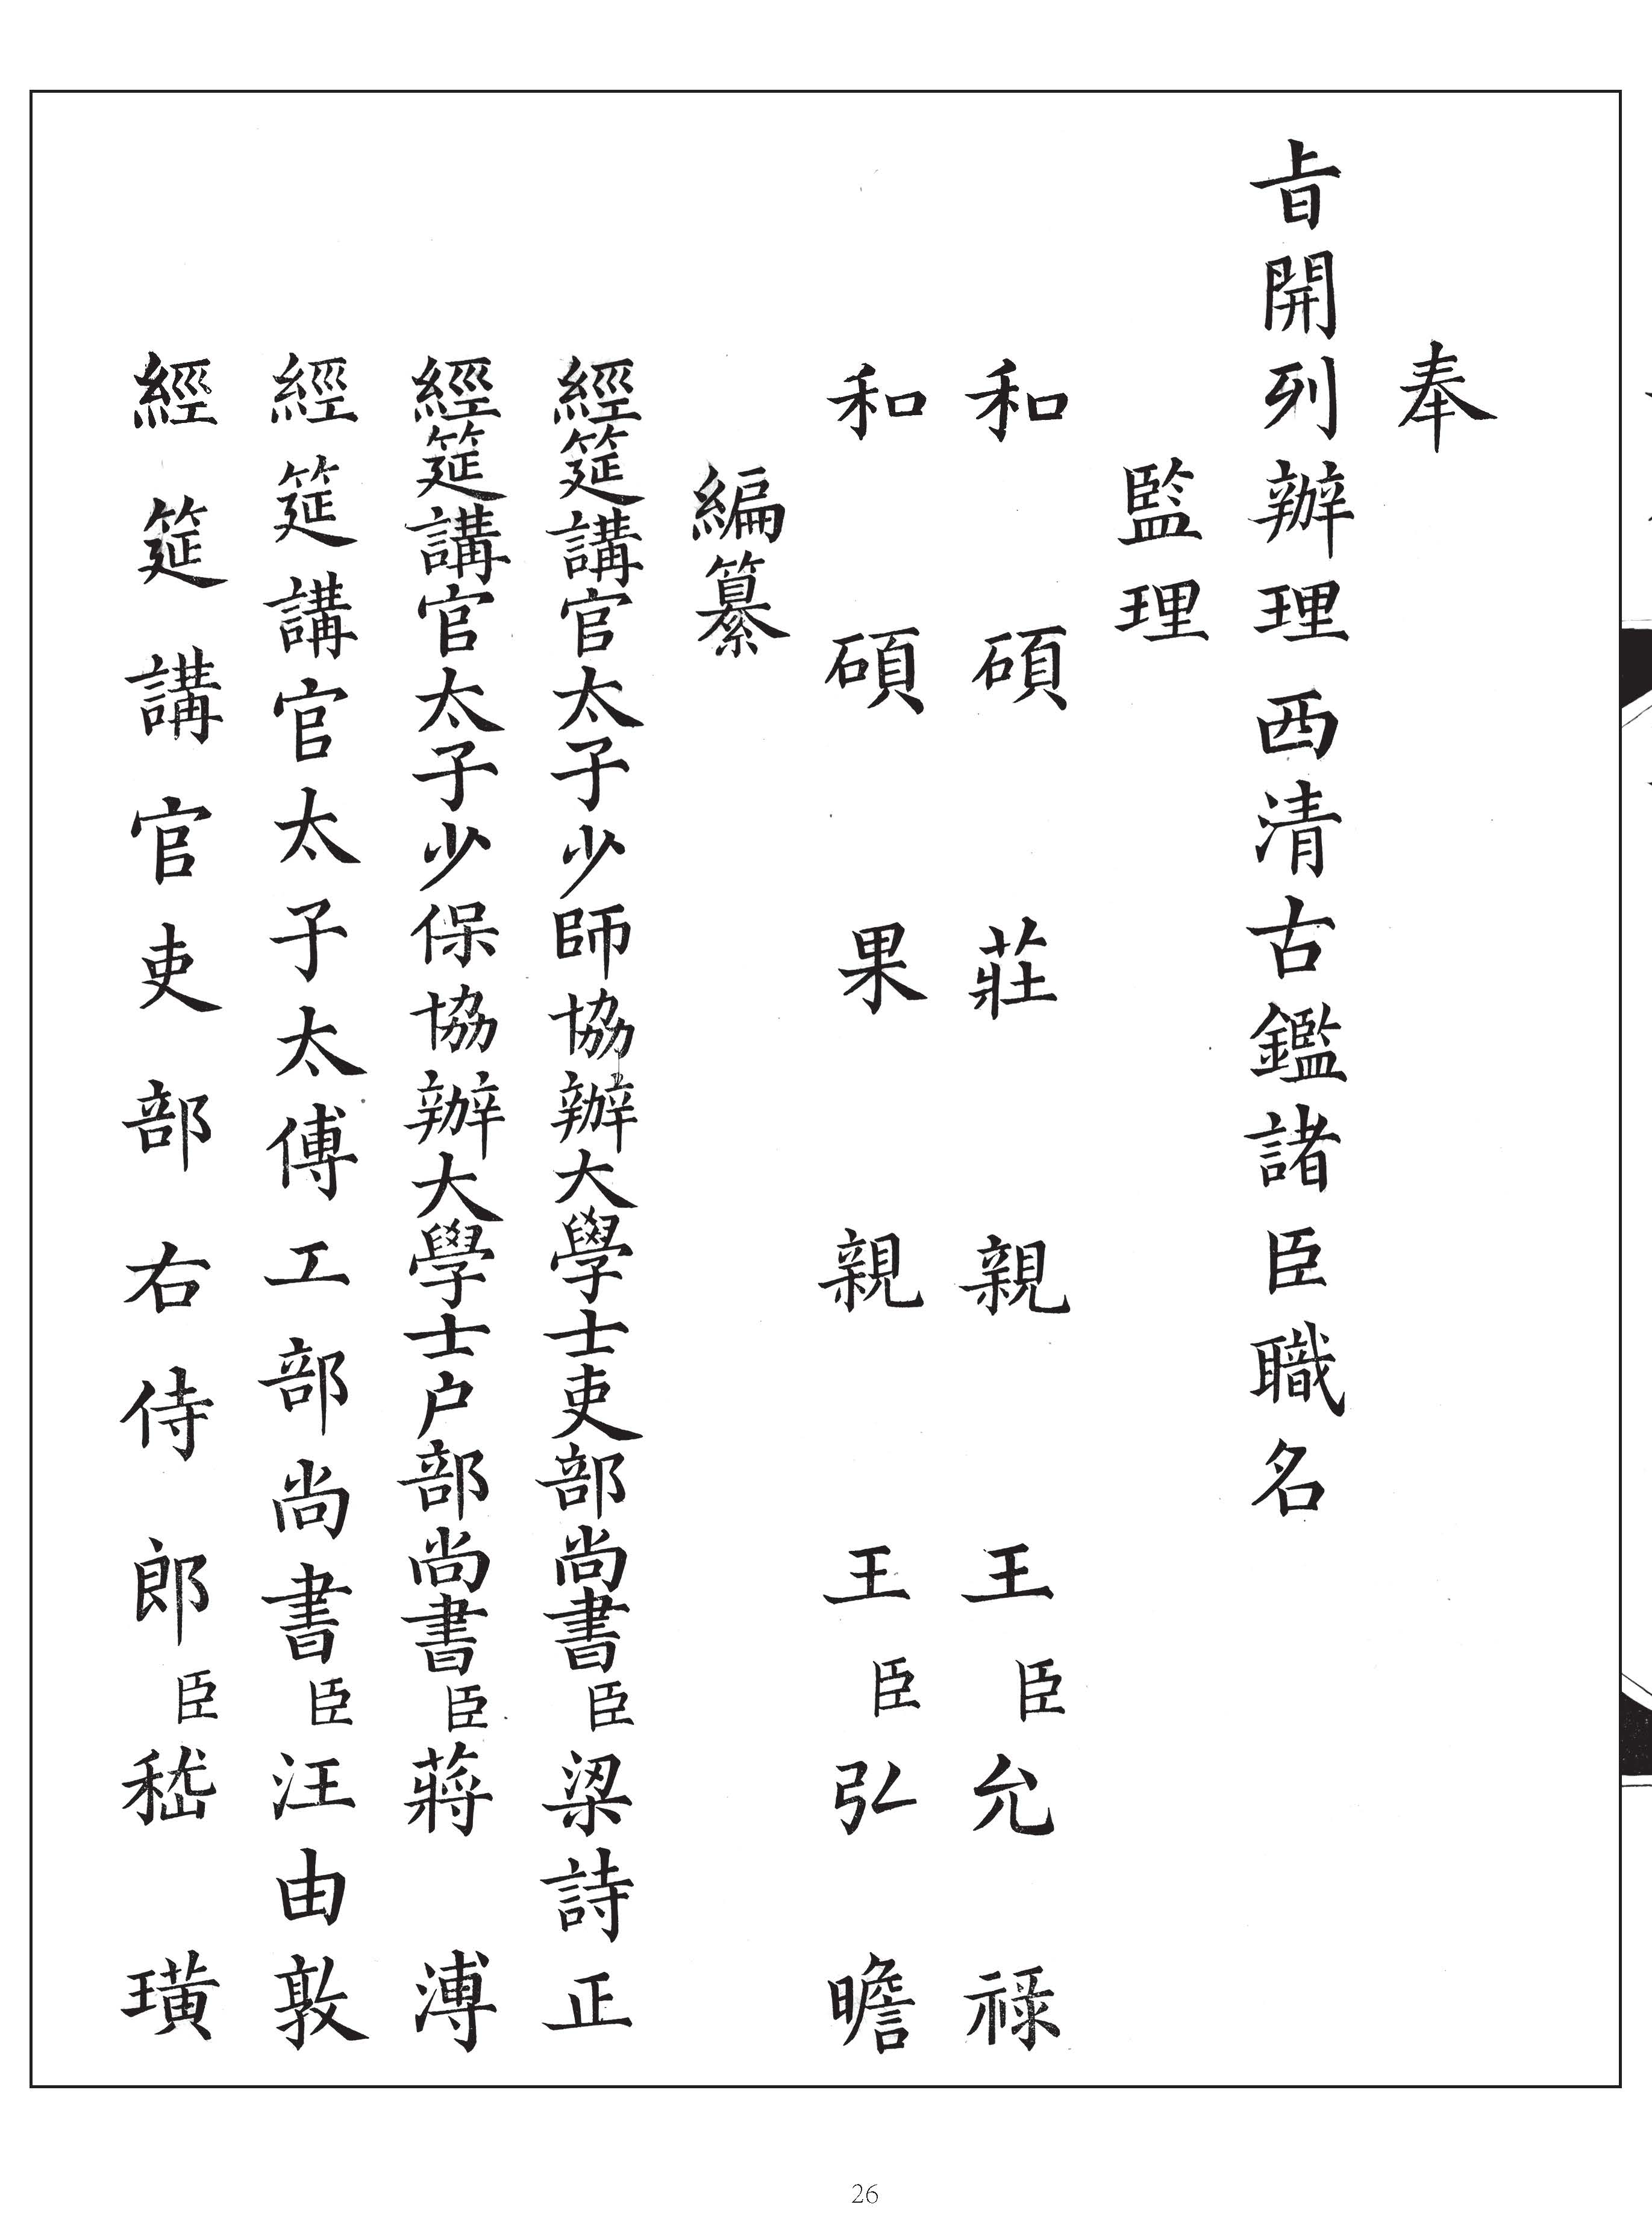 奉
旨開列辦理西清古鑑諸臣職名
監理
和碩莊親王臣允祿
和碩果親王臣弘瞻
編纂
經筵講官太子少師協辦大學士吏部尚書臣梁詩正
經筵講官太子少保協辦大學士户部尚書臣蔣溥
經筵講官太子太傅工部尚書臣汪由敦
經筵講官吏部右侍郎臣嵇璜
26